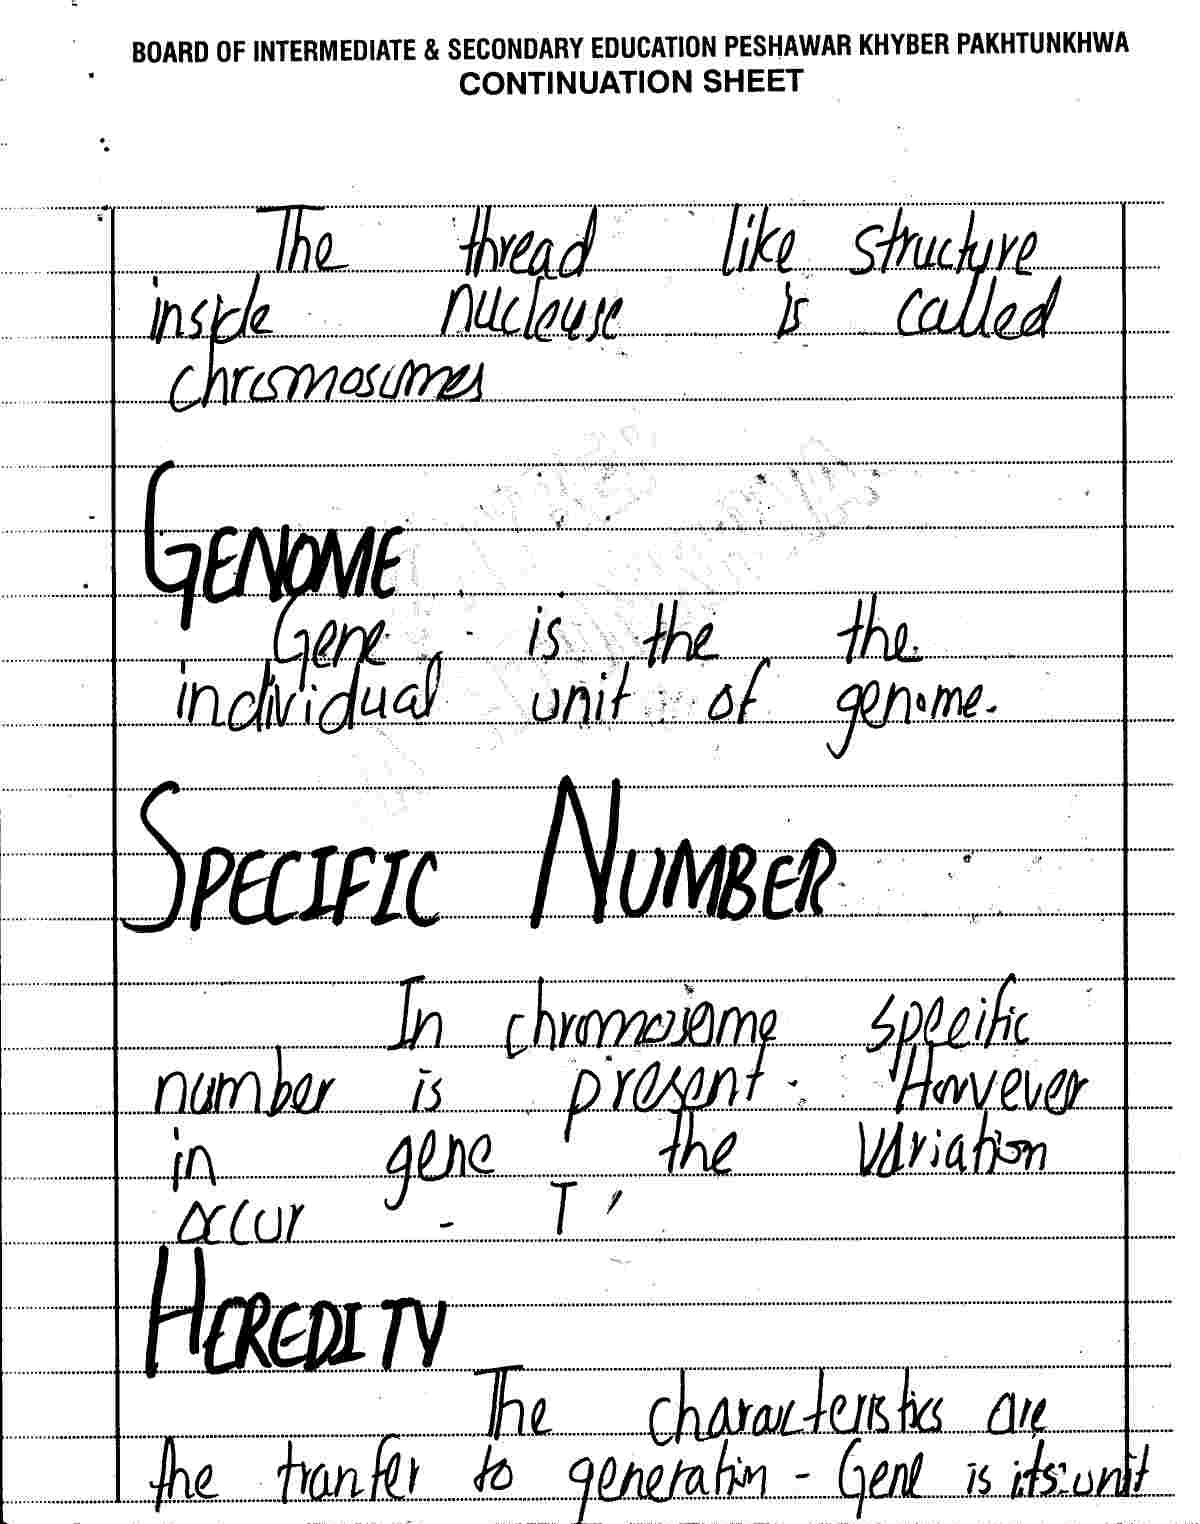 BOARD OF INTERMEDIATE & SECONDARY EDUCATION PESHAWAR KHYBER PAKHTUNKHWA
CONTINUATION SHEET
The thread like structure
inside nucleuse is called
chrosmosomes
GENOME
Gene is the the
individual unit of genome.
SPECIFIC NUMBER
In chromosome speeific
number is present. However
in gene the variation
occur - T
HEREDITY
The characteristics are
the tranfer to generation - Gene is its unit